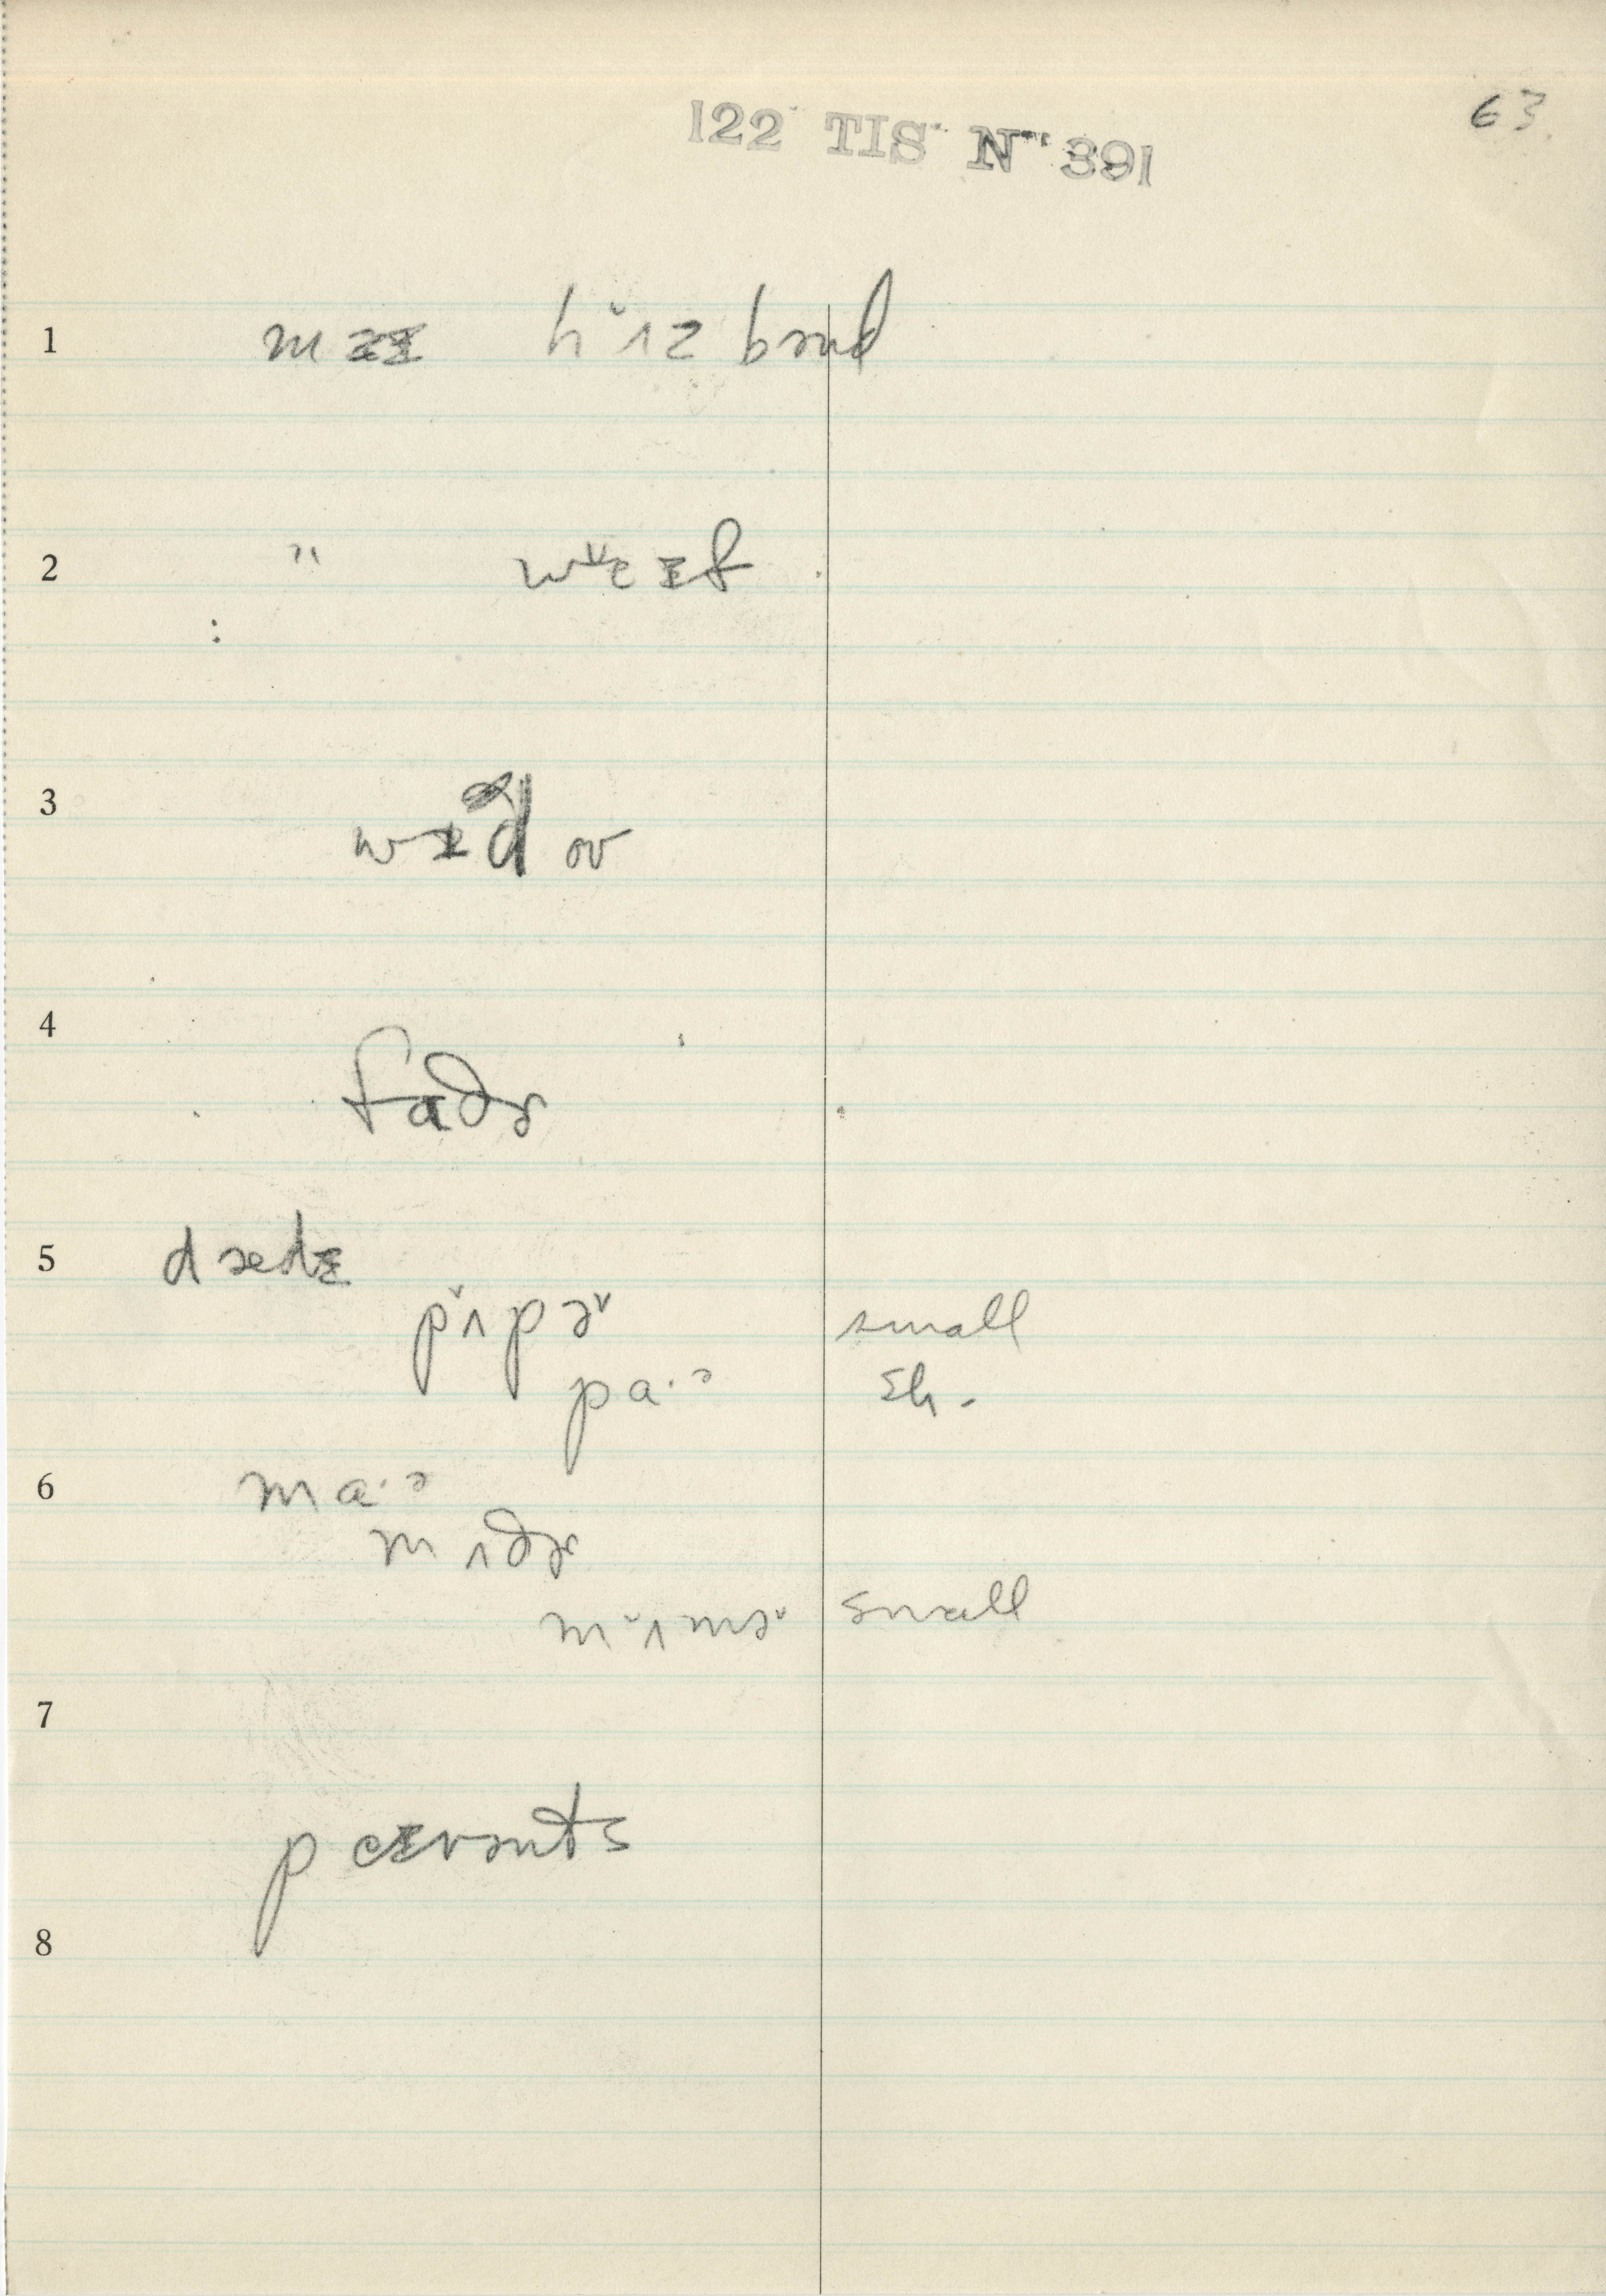 122 TIS N 391
63
1 maɪ hʌ̌zbənd
2 " wɐ̌ɪf
:
3 wɪdoʊ
4 faðɚ
5 dædɪ
pʌ̌pə̌ small
pa·ə sh-
6 ma·ə
mʌðɚ
mʌ̌mə̌ small
7
pɛɪrənts
8